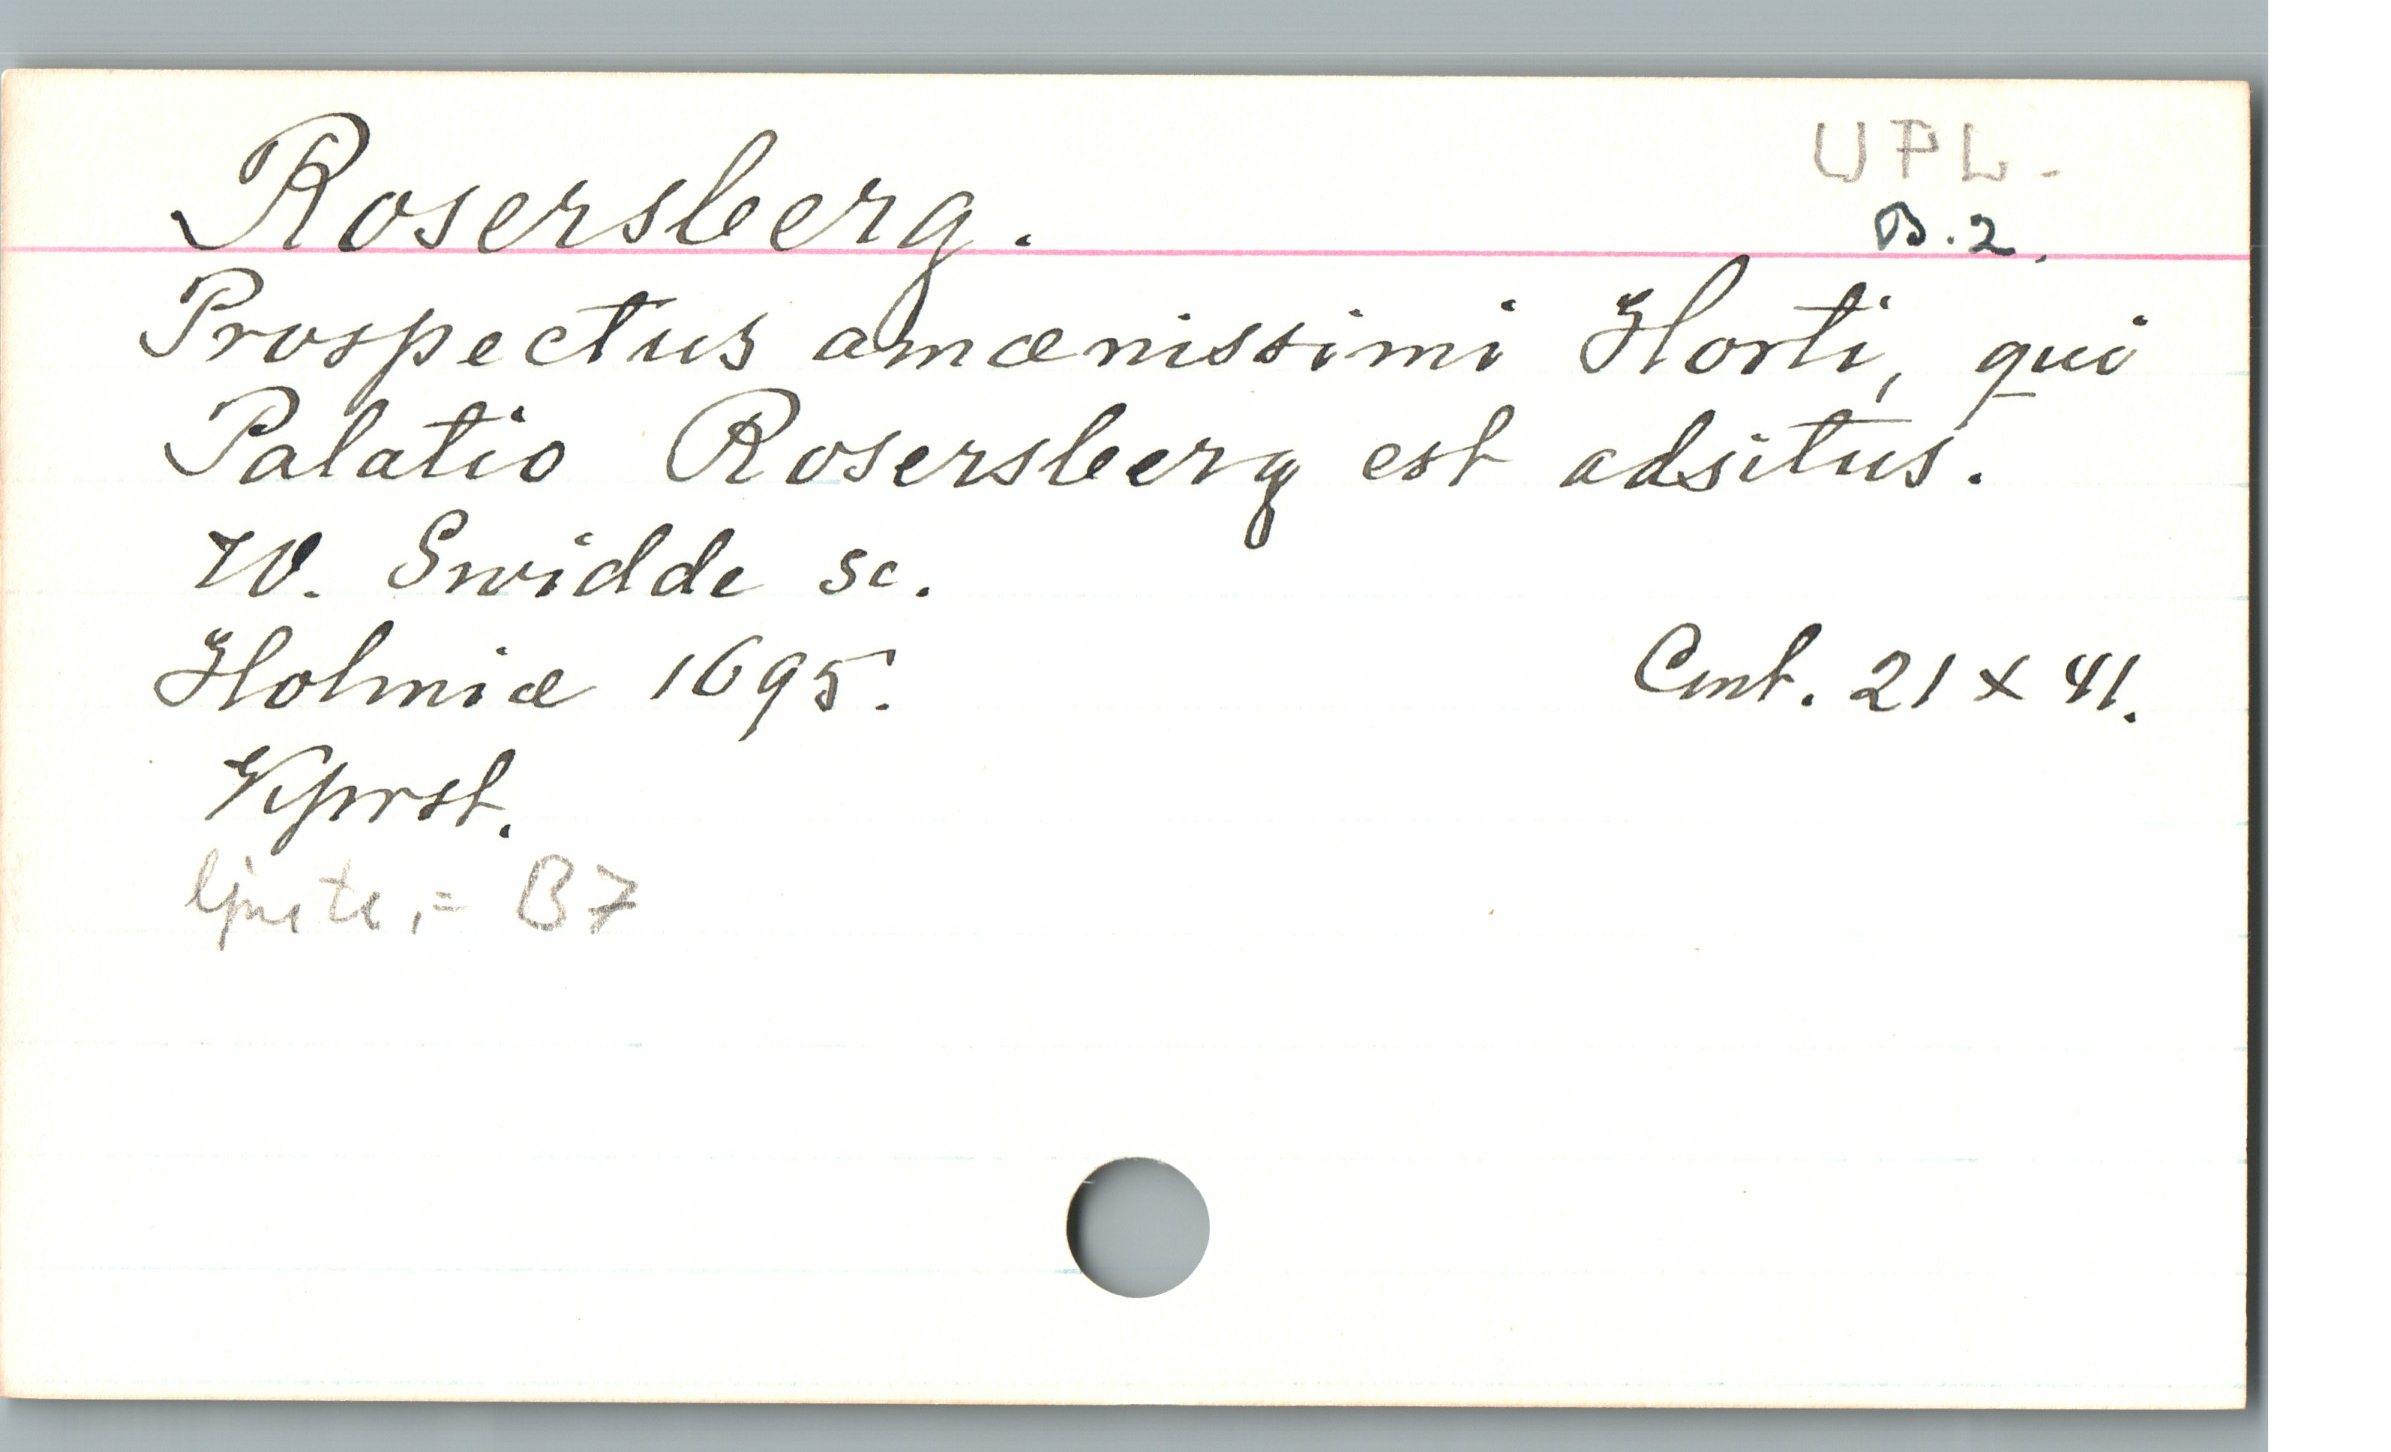 Rosersberg.
UPL.
B.2.
Prospectus amœnissimi Horti, qui
Palatio Rosersberg est adsitus.
W. Swidde sc.
Holmiæ 1695.
Cmt. 21 x 41.
Kprst.
B7